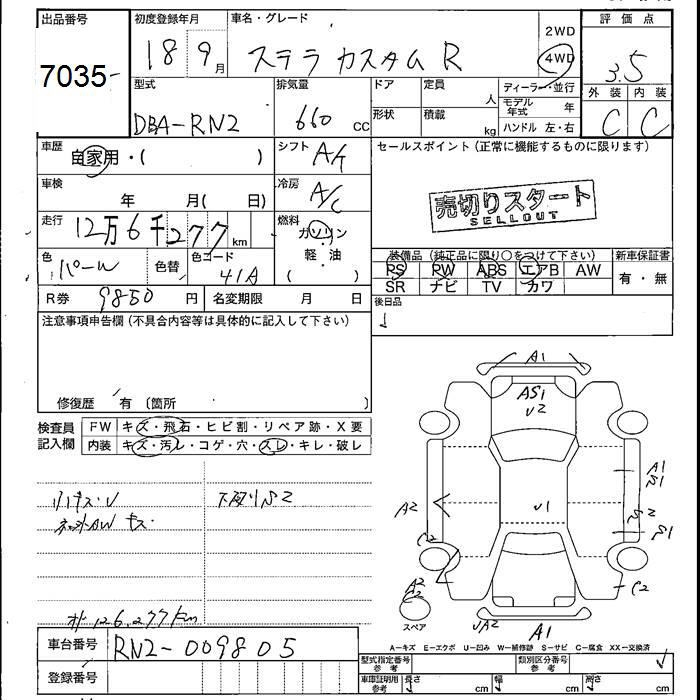 出品番号
7035
初度登録年月
18 9月
車名・グレード
ステラ カスタム R
2WD
4WD
評価点
3.5
外装 内装
C C
型式
DBA-RN2
排気量
660 cc
ドア
形状
定員
人
積載
kg
ディーラー・並行
モデル年式 年
ハンドル 左・右
車歴
自家用・( )
シフト A/T
車検
年 月( 日)
冷房 A/C
走行
12万6千277km
燃料
ガソリン
・
軽・油
( )
色
パール
色替
色コード
41A
R券 9850 円
名変期限 月 日
セールスポイント(正常に機能するものに限ります)
売切りスタート
SELLOUT
装備品(純正品に限り○をつけて下さい)
PS PW ABS エアB AW
SR ナビ TV カワ
新車保証書
有・無
後日品
注意事項申告欄(不具合内容等は具体的に記入して下さい)
修復歴 有(箇所 )
検査員記入欄
FW キズ・飛石・ヒビ割・リペア跡・X要
内装 キズ・汚レ・コゲ・穴・スレ・キレ・破レ
126,277km
A1
AS1
U2
U1
A1
S1
A2
S2
S1
C2
C2
A2
UA2
A1
スペア
A-キズ E-エクボ U-凹み W-補修跡 S-サビ C-腐食 XX-交換済
車台番号
RN2-009805
登録番号
型式指定番号
参考
類別区分番号
参考
車庫証明用
参考
長さ cm
幅 cm
高さ cm